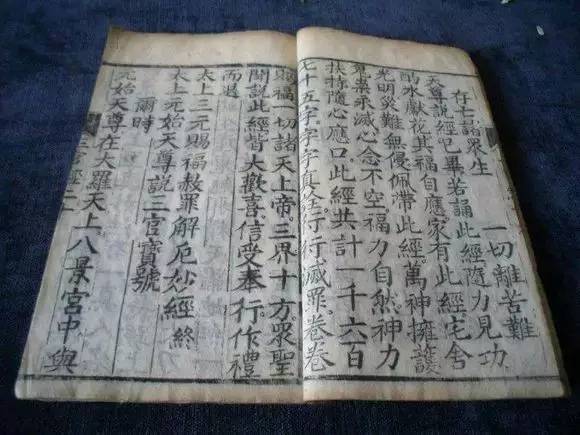 存亡諸眾生　一切離苦難
天尊說經已畢若誦此經隨力見功
酌水獻花其福自應家有此經宅舍
光明災難無侵佩帶此經。萬神擁護
冤業永滅心念不空福力自然神力
扶持隨心應口。此經共計一千六百
七十五字。字字真詮。行行滅罪。卷卷
賜福一切諸天上帝。三界十方眾聖
聞說此經皆大歡喜。信受奉行。作禮
而退
太上三元賜福赦罪解厄妙經終
太上元始天尊說三官寶號
爾時
元始天尊在大羅天上。八景宮中與
三官經　二